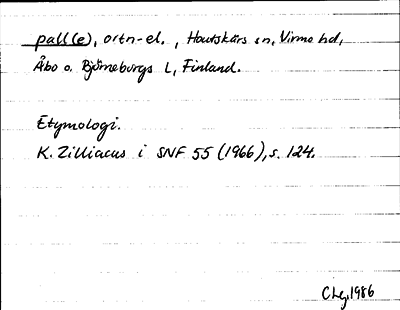 pall(e), ortn-el. , Houtskärs sn, Virmo hd,
Åbo o. Björneborgs L, Finland.
Etymologi.
K. Zilliacus i SNF 55 (1966), s. 124.
CLg, 1986